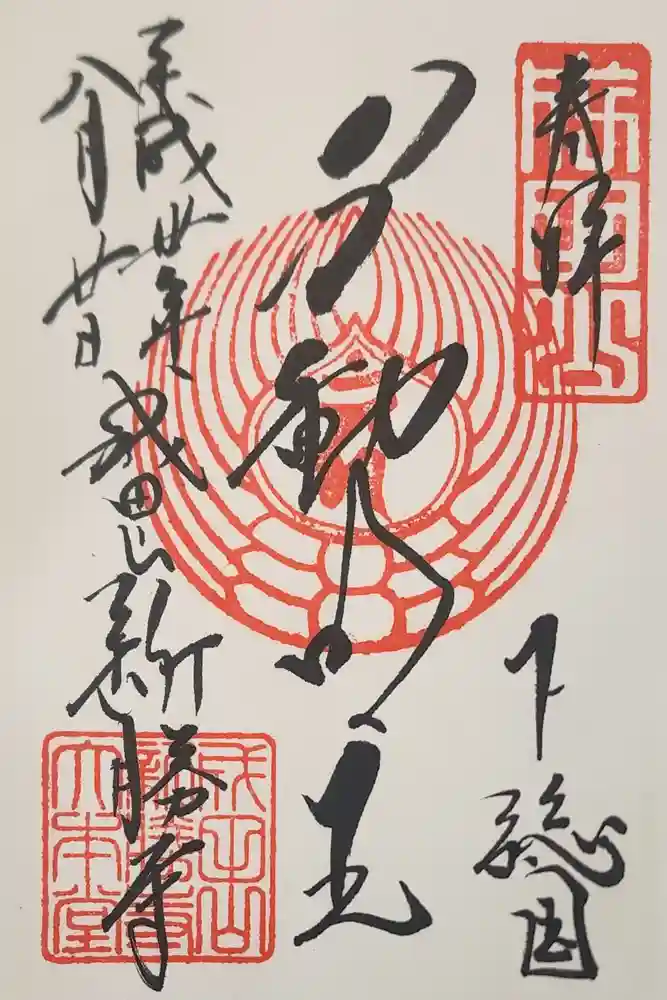 奉拝
下總国
不動明王
平成丗年
八月廿日
成田山新勝寺
成田山
新勝寺
大本堂